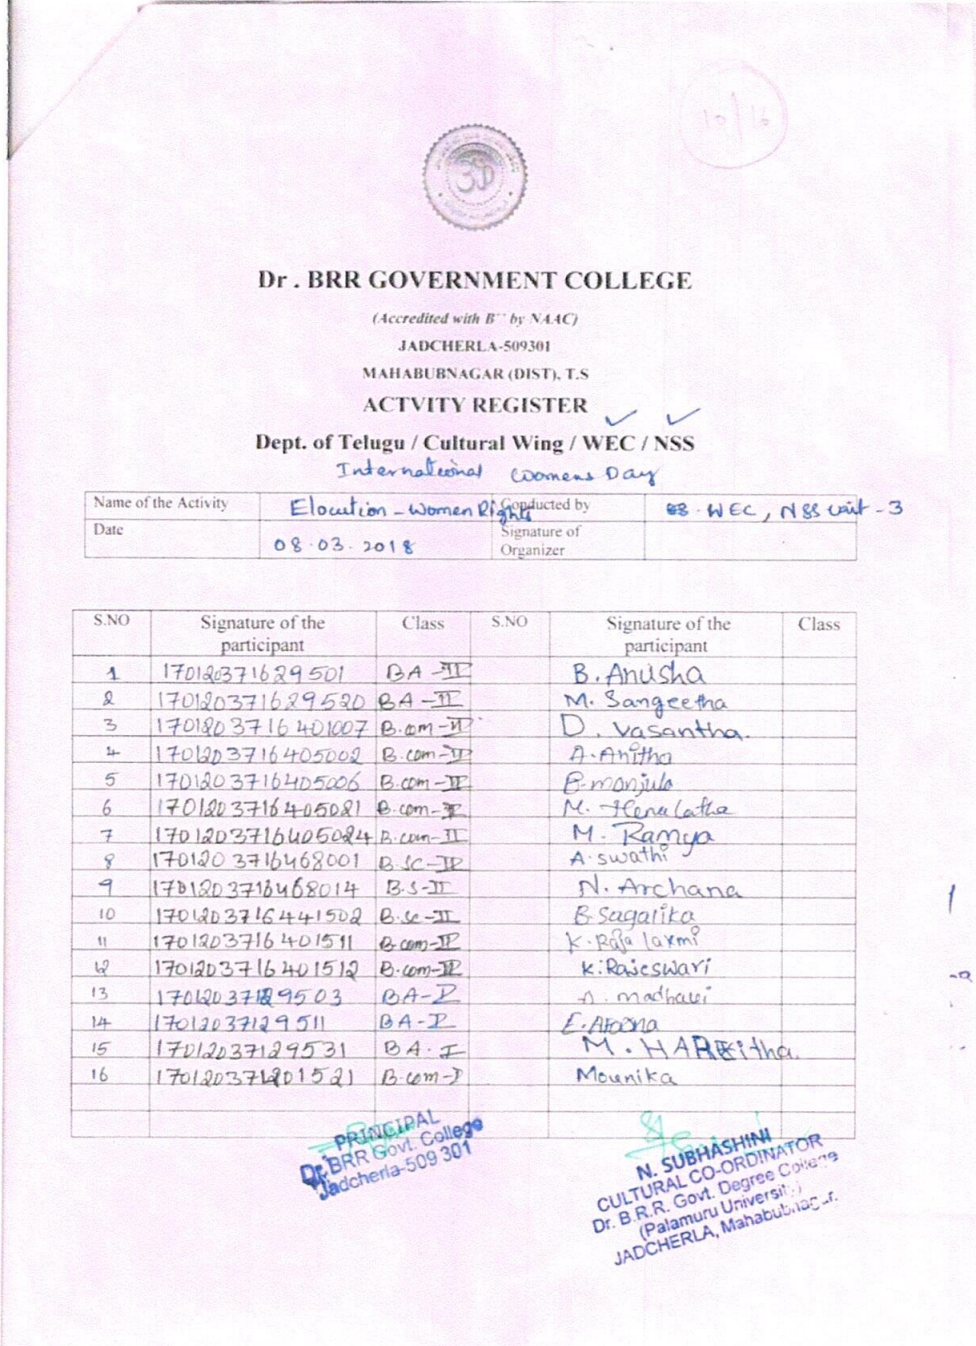 10/16
Dr . BRR GOVERNMENT COLLEGE
(Accredited with B++ by NAAC)
JADCHERLA-509301
MAHABUBNAGAR (DIST). T.S
ACTVITY REGISTER
Dept. of Telugu / Cultural Wing / WEC / NSS
International Womens Day
Name of the Activity Elocution - Women Rights Conducted by WEC, NSS Unit - 3
Date 08.03.2018 Signature of Organizer
S.NO Signature of the participant Class S.NO Signature of the participant Class
1 170120371629501 BA-II B. Anusha
2 170120371629520 BA-II M. Sangeetha
3 1701203716401007 B.com-II D. Vasantha.
4 1701203716405002 B.com-II A. Anitha
5 1701203716405006 B.com-II B. manjula
6 1701203716405021 B.com-II M. Hemalatha
7 1701203716405024 B.com-II M. Ramya
8 1701203716468001 B.SC-II A. swathi
9 1701203716468014 B.S-II N. Archana
10 1701203716441502 B.Sc-II B Sagarika
11 1701203716401511 B.com-II K. Raja laxmi
12 1701203716401512 B.com-II K. Rajeswari
13 17012037129503 BA-I A. madhavi
14 17012037129511 BA-I E.
15 17012037129531 BA.I M. HARSitha.
16 170120371201521 B.com-I Mounika
PRINCIPAL
Dr. BRR Govt. College
Jadcherla-509 301
N. SUBHASHINI
CULTURAL CO-ORDINATOR
Dr. B.R.R. Govt. Degree College
(Palamuru University)
JADCHERLA, Mahabubnagar.